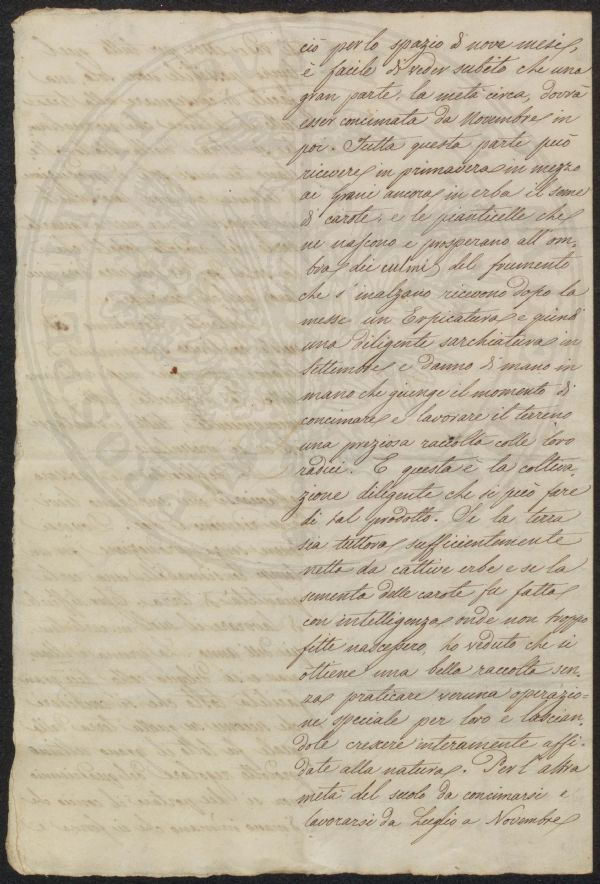 ciò per lo spazio di nove mesi,
è facile di veder subito che una
gran parte, la metà circa, dovrà
esser concimata da Novembre in
poi. Tutta questa parte può
ricevere in primavera in mezzo
ai Grani ancora in erba il seme
di carote, e le pianticelle che
ne nascono e prosperano all'om-
bra dei culmi del frumento
che s'inalzano ricevono dopo la
messe un Erpicatura e quindi
una diligente sarchiatura in
Settembre e danno di mano in
mano che giunge il momento di
concimare e lavorare il terreno
una preziosa raccolta colle loro
radici. E questa è la coltiva-
zione diligente che si può fare
di tal prodotto. Se la terra
sia tuttora sufficientemente
netta da cattive erbe e se la
sementa delle carote fu fatta
con intelligenza onde non troppo
fitte nascessero, ho veduto che si
ottiene una bella raccolta sen-
za praticare veruna operazio-
ne speciale per loro e lascian-
dole crescere interamente affi-
date alla natura. Per l'altra
metà del suolo da concimarsi e
lavorarsi da Luglio a Novembre